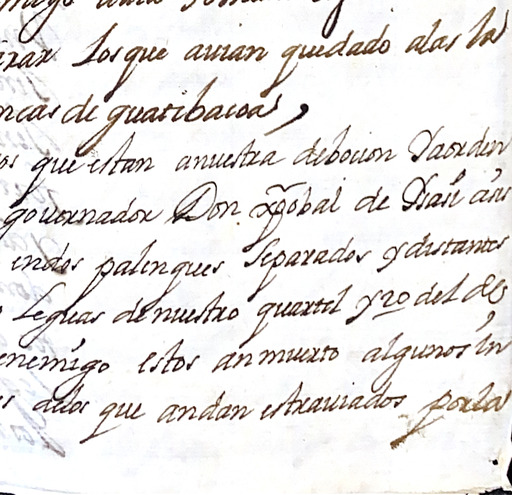 irar los que auian quedado alas ba
ncas de guatibacoa,
os que estan anuestra debocion Yaorden
gouernador Don xpobal de Ysasi a sus
endos palenques separados y distantes
Leguas de nuestro quartel y 20 del del
enemigo estos an muerto algunos in
s delos que andan estrauiados por la